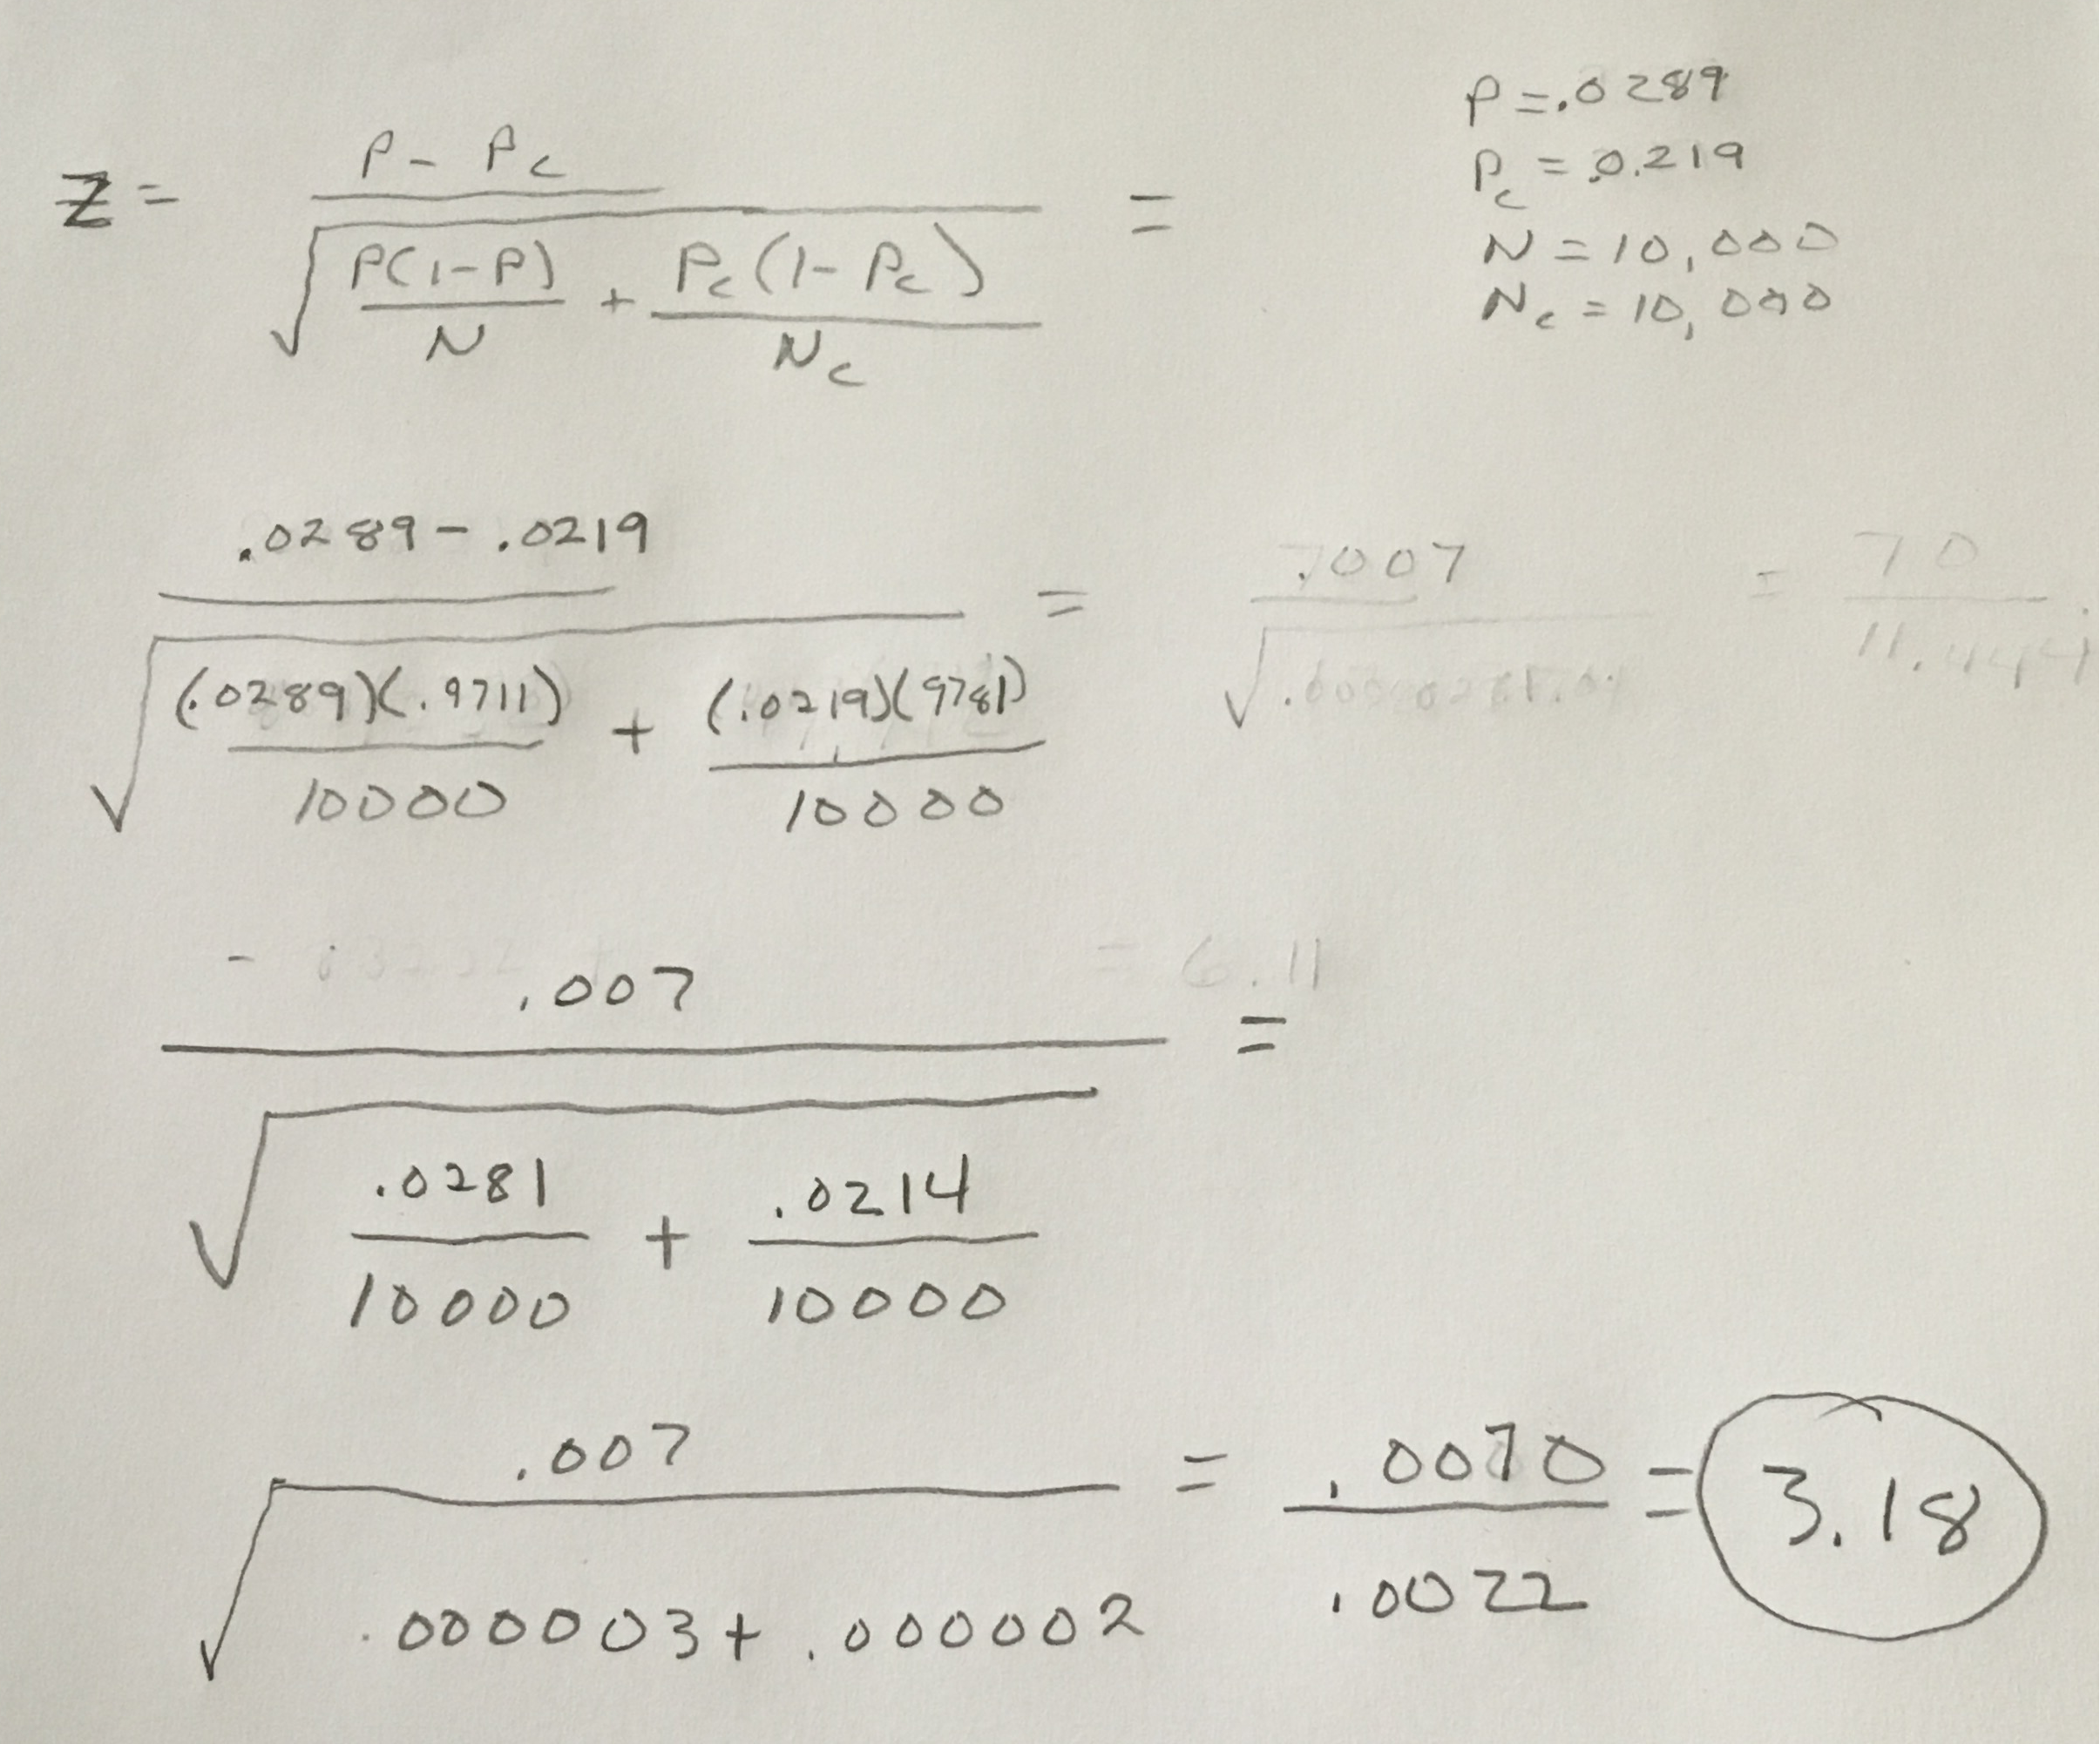 Z = (P - Pc) / √(P(1-P)/N + Pc(1-Pc)/Nc) =
P = .0289
Pc = .0.219
N = 10,000
Nc = 10,000
(.0289 - .0219) / √((.0289)(.9711)/10000 + (.0219)(9781)/10000) =
.007
= 70
= 6.11
.007 / √(.0281/10000 + .0214/10000) =
.007 / √(.000003 + .000002) = .0070 / .0022 = 3.18